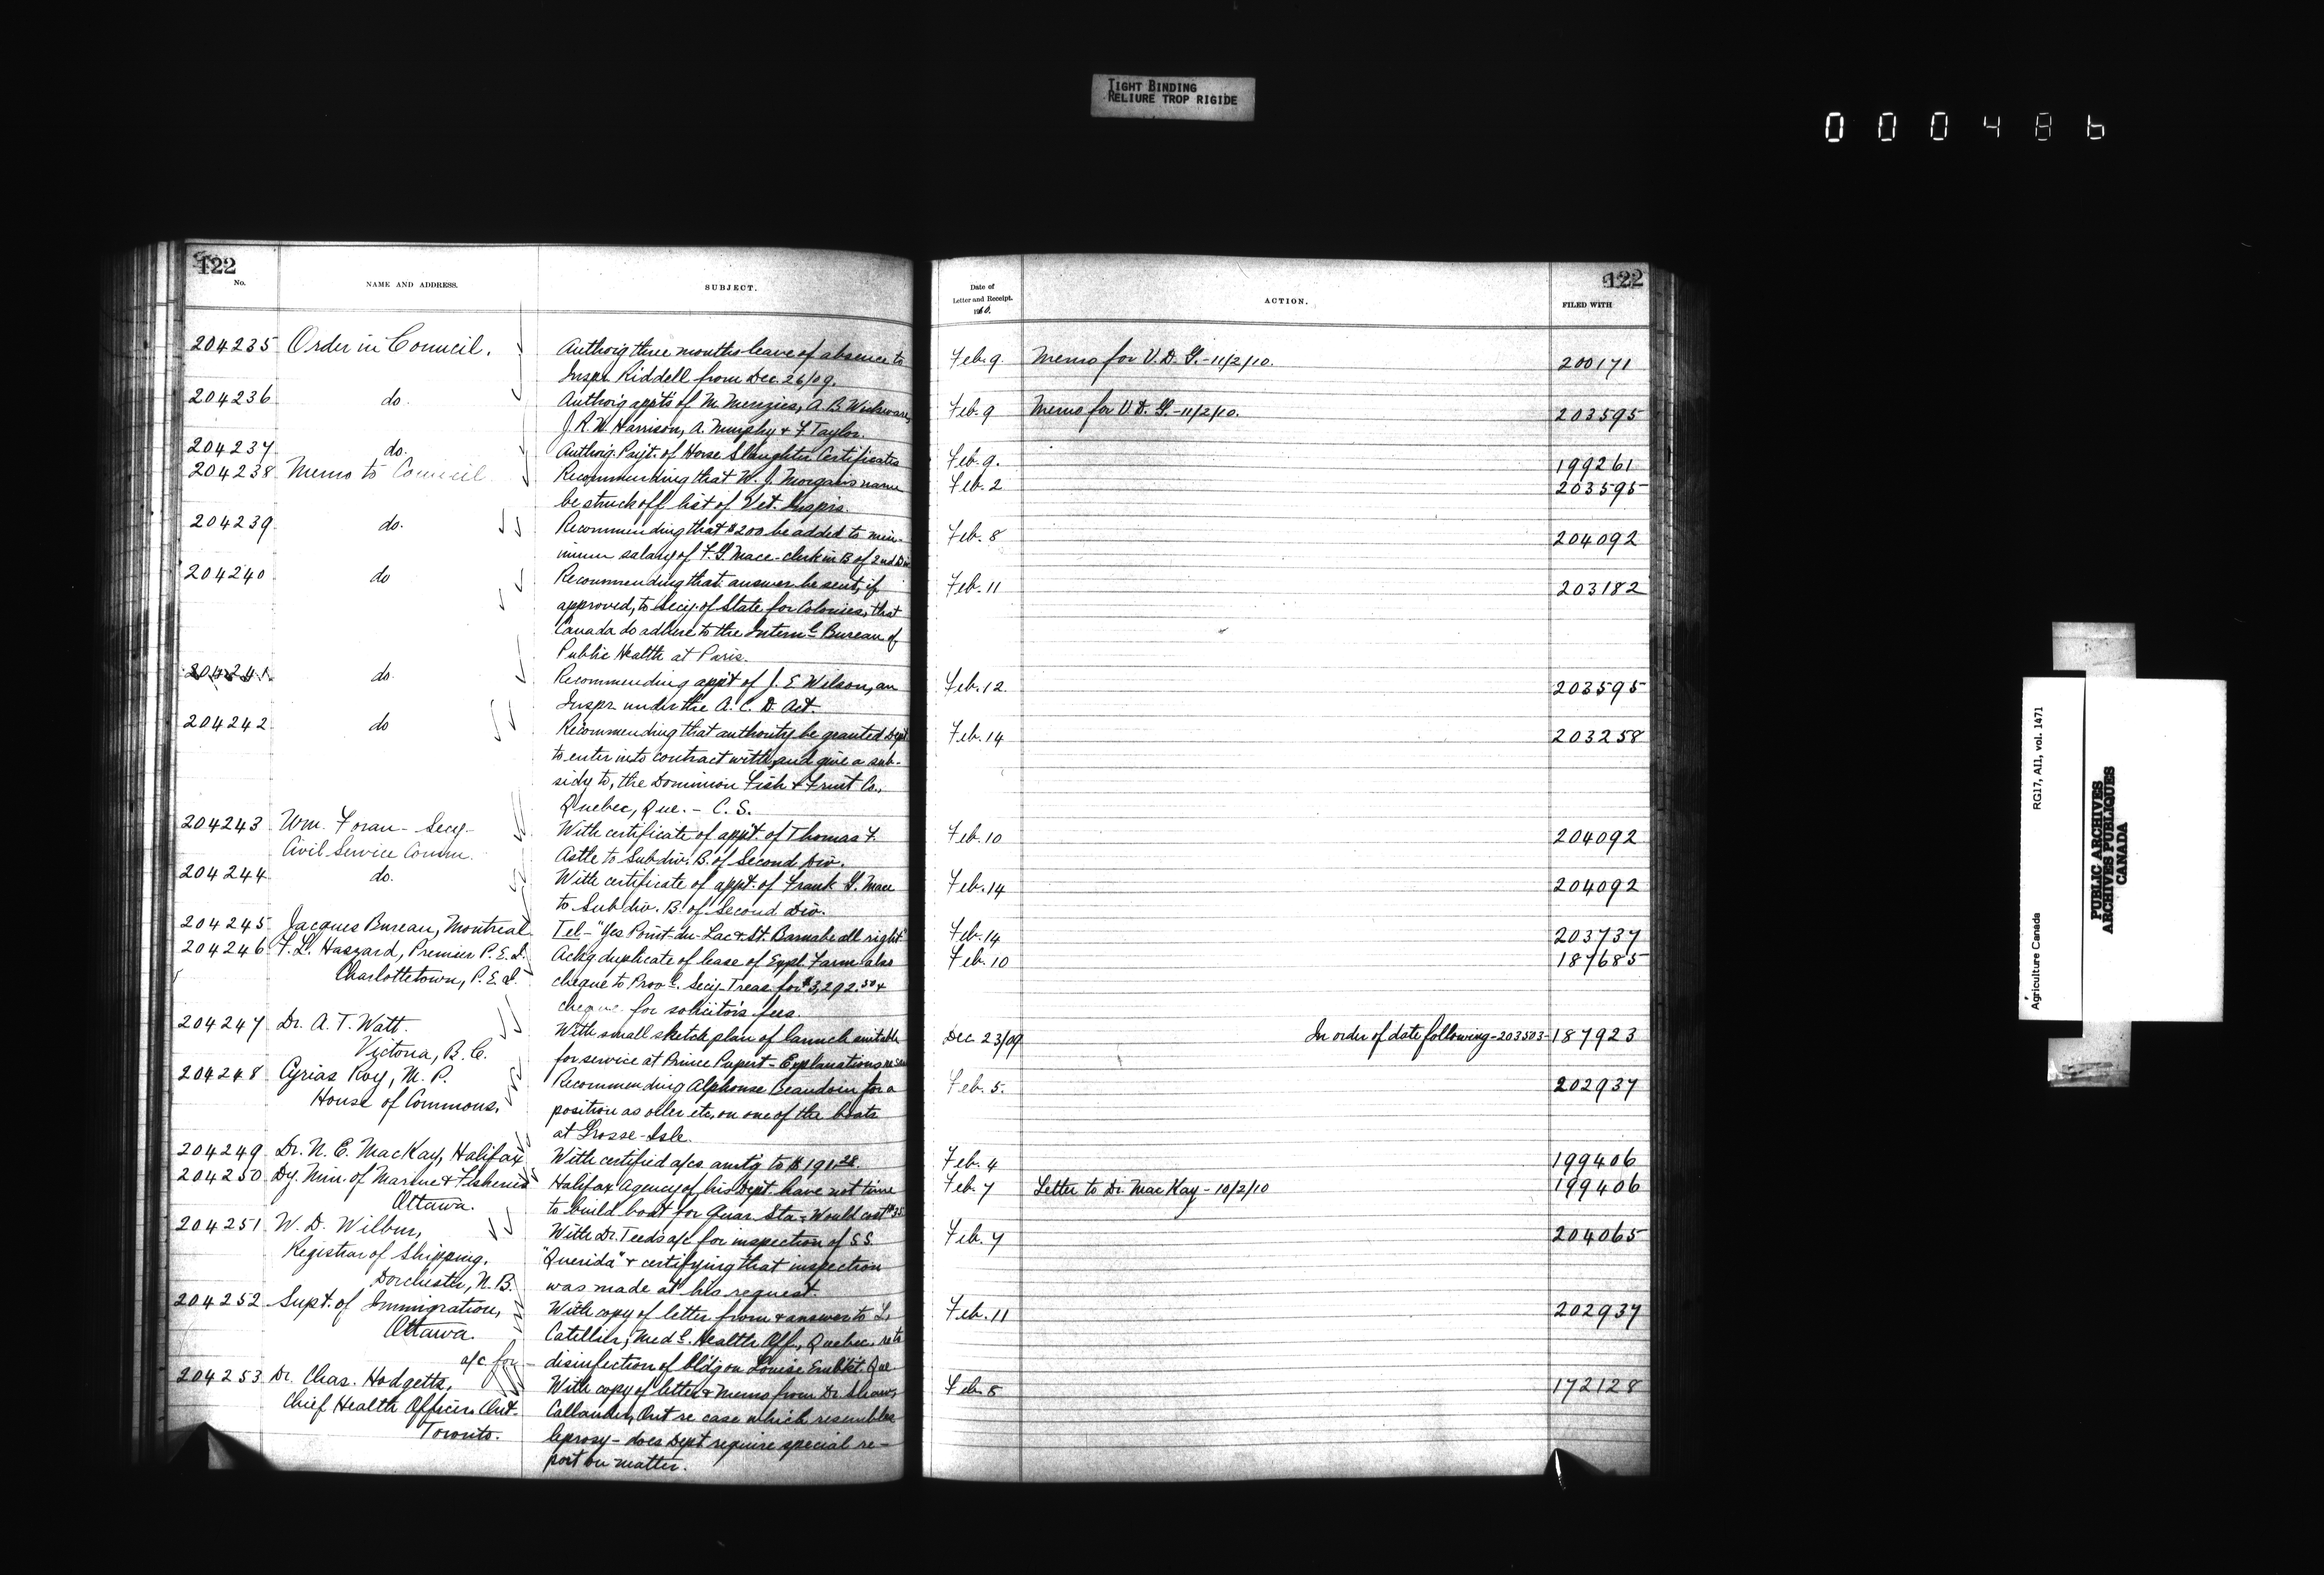 TIGHT BINDING
RELIURE TROP RIGIDE
000486
122
No.
NAME AND ADDRESS.
SUBJECT.
204235 Order in Council. Authorig three months leave of absence to
Inspr. Riddell from Dec. 26/09.
204236 do. Authorig appts of M. Menzies, A. B. Wickware,
J. R. W. Harrison, A. Murphy & F. Taylor.
204237 do. Authorig. Payt. of Horse Slaughter Certificates
204238 Memo to Council Recommending that W. J. Morgan's name
be struck off list of Vet. Insprs.
204239 do. Recommending that $200 be added to min-
imum salary of F. G. Mace - clerk in B of 2nd Div
204240 do Recommending that answer be sent, if
approved, to Secy. of State for Colonies, that
Canada do adhere to the Internl Bureau of
Public Health at Paris.
204241 do. Recommending appt of J. E. Wilson, an
Inspr. under the A. C. D. Act.
204242 do Recommending that authority be granted Dept
to enter into contract with, and give a sub-
sidy to, the Dominion Fish & Fruit Co.,
Quebec, Que. - C. S.
204243 Wm. Foran - Secy. With certificate of appt. of Thomas F.
Civil Service Comm. Astle to Subdiv. B. of Second Div.
204244 do. With certificate of appt. of Frank G. Mace
to Subdiv. B. of Second Div.
204245 Jacques Bureau, Montreal Tel - "Yes Point-du-Lac & St. Barnabe all right"
204246 F. L. Haszard, Premier P. E. I. Ackg duplicate of lease of Expl. Farm also
Charlottetown, P. E. I. cheque to Provl. Secy. Treas. for $3,292.50 &
cheque for solicitor's fees.
204247 Dr. A. T. Watt. With small sketch plan of launch suitable
Victoria, B. C. for service at Prince Rupert - Explanations re same
204248 Cyrias Roy, M. P. Recommending Alphonse Beaudoin for a
House of Commons, position as oiler etc, on one of the boats
at Grosse-Isle.
204249 Dr. N. E. MacKay, Halifax With certified a/cs amtg to $191.28.
204250 Dy. Min. of Marine & Fisheries Halifax Agency of his Dept. have not time
Ottawa. to build boat for Quar. Sta - Would cost $35
204251 W. D. Wilbur, With Dr. Teeds a/c for inspection of S.S.
Registrar of Shipping, "Querida" & certifying that inspection
Dorchester, N. B. was made at his request.
204252 Supt. of Immigration, With copy of letter from & answer to L.
Ottawa. Catellier, Medl. Health Off., Quebec, re
a/c for - disinfection of bldg on Louise Embkt. Que.
204253 Dr. Chas. Hodgetts, With copy of letter & memo from Dr. Shaw,
Chief Health Officer, Ont. Callander, Ont re case which resembles
Toronto. leprosy - does Dept require special re-
port on matter.
122
Date of
Letter and Receipt.
1910.
ACTION.
FILED WITH
Feb. 9 Memo for V. D. G. - 11/2/10. 200171
Feb. 9 Memo for V. D. G. - 11/2/10. 203595
Feb. 9. 199261
Feb. 2 203595
Feb. 8 204092
Feb. 11 203182
Feb. 12 203595
Feb. 14 203258
Feb. 10 204092
Feb. 14 204092
Feb. 14 203737
Feb. 10 187685
Dec. 23/09 In order of date following - 203503 - 187923
Feb. 5. 202937
Feb. 4 199406
Feb. 7 Letter to Dr. MacKay - 10/2/10 199406
Feb. 7 204065
Feb. 11 202937
Feb. 8 172128
Agriculture Canada RG17, AI1, vol. 1471
PUBLIC ARCHIVES
ARCHIVES PUBLIQUES
CANADA